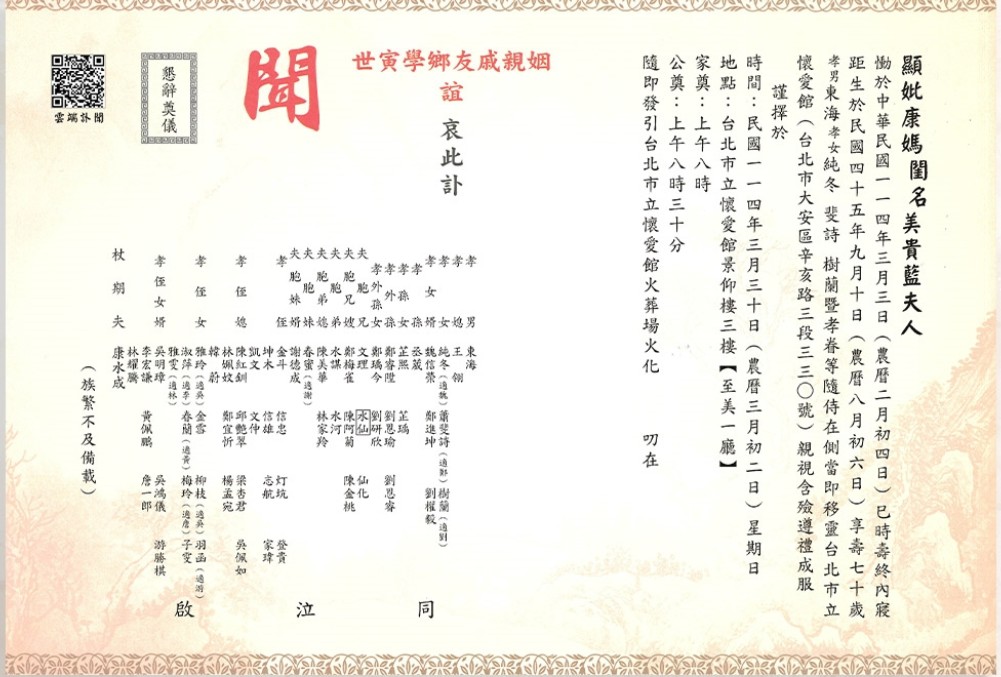 顯妣康媽閨名美貴藍夫人
慟於中華民國一一四年三月三日（農曆二月初四日）巳時壽終內寢
距生於民國四十五年九月十日（農曆八月初六日）享壽七十歲
孝男東海 孝女純冬 斐詩 樹蘭暨孝眷等隨侍在側當即移靈台北市立
懷愛館（台北市大安區辛亥路三段三三〇號）親視含殮遵禮成服
謹擇於
時間：民國一一四年三月三十日（農曆三月初二日）星期日
地點：台北市立懷愛館景仰樓三樓【至美一廳】
家奠：上午八時
公奠：上午八時三十分
隨即發引台北市立懷愛館火葬場火化 叨在
姻親戚友鄉學寅世
誼 哀此訃
聞
懇辭奠儀
雲端訃聞
孝男 東海
孝媳 王翎
孝女 純冬（適魏） 蕭斐詩（適鄭） 樹蘭（適劉）
孝女婿 魏信榮 鄭進坤 劉權毅
孝孫 丞葳
孝孫女 芷熙 芷瑀
孝外孫 鄭睿暟 劉恩瑜 劉恩睿
孝外孫女 鄭瑀今 劉研欣
夫胞兄 文理 水仙 仙化
夫胞兄嫂 鄭梅雀 陳阿菊 陳金桃
夫胞弟 水謀 水河
夫胞弟媳 陳美華 林家羚
夫胞妹 春蜜（適謝）
夫胞妹婿 謝德成
孝侄 金斗 信忠 灯坑 登貴
坤木 信雄 志航 家瑋
凱文 文仲
孝侄媳 陳紅釧 邱艷翠 梁杏君 吳佩如
林姵妏 鄭宜忻 楊孟宛
韓蔚
孝侄女 雅玲（適吳） 金雲 柳枝（適吳） 羽函（適游）
淑萍（適李） 春蘭（適黃） 梅玲（適詹） 子雯
雅雯（適林）
孝侄女婿 吳明璋 吳鴻儀 游勝棋
李宏謙 黃佩鵬 詹一郎
林耀騰
杖期夫 康水成
（族繁不及備載）
同 泣 啟